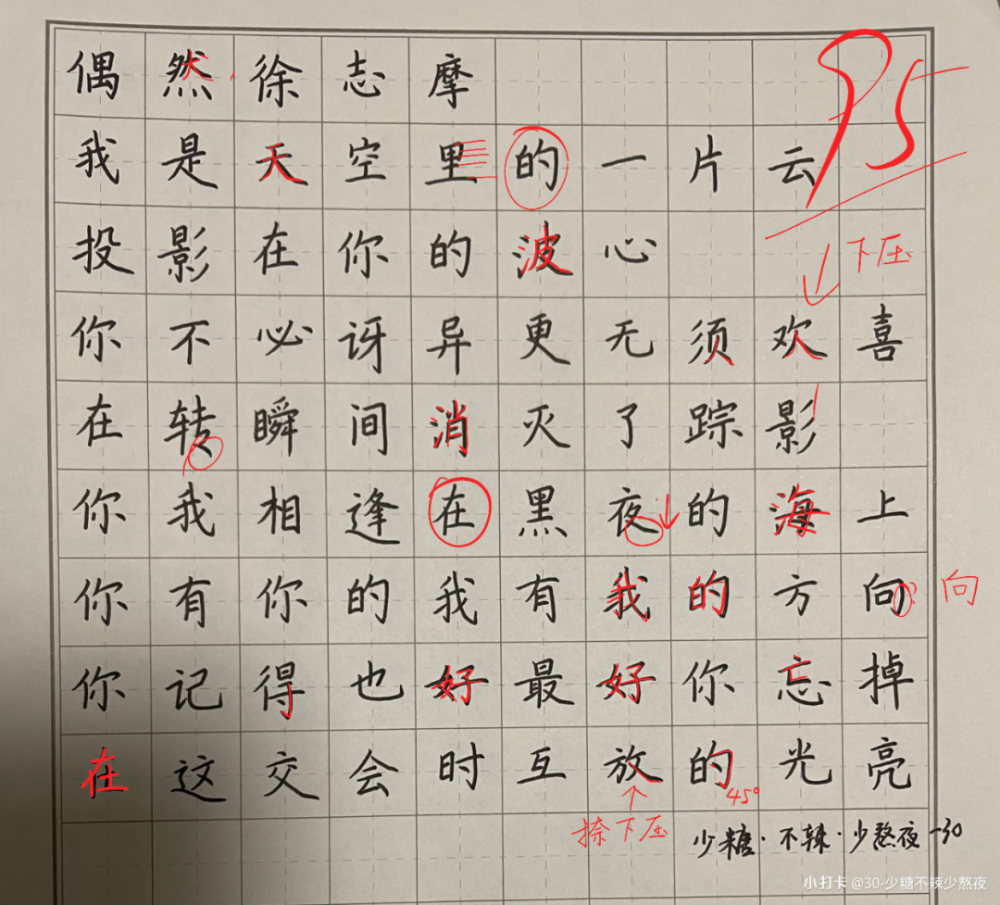 偶然徐志摩
95
我是天空里的一片云
投影在你的波心
下压
你不必讶异更无须欢喜
在转瞬间消灭了踪影
你我相逢在黑夜的海上
你有你的我有我的方向
向
你记得也好最好你忘掉
在这交会时互放的光亮
45°
捺下压
少糖·不辣·少熬夜-30
小打卡 @30-少糖不辣少熬夜